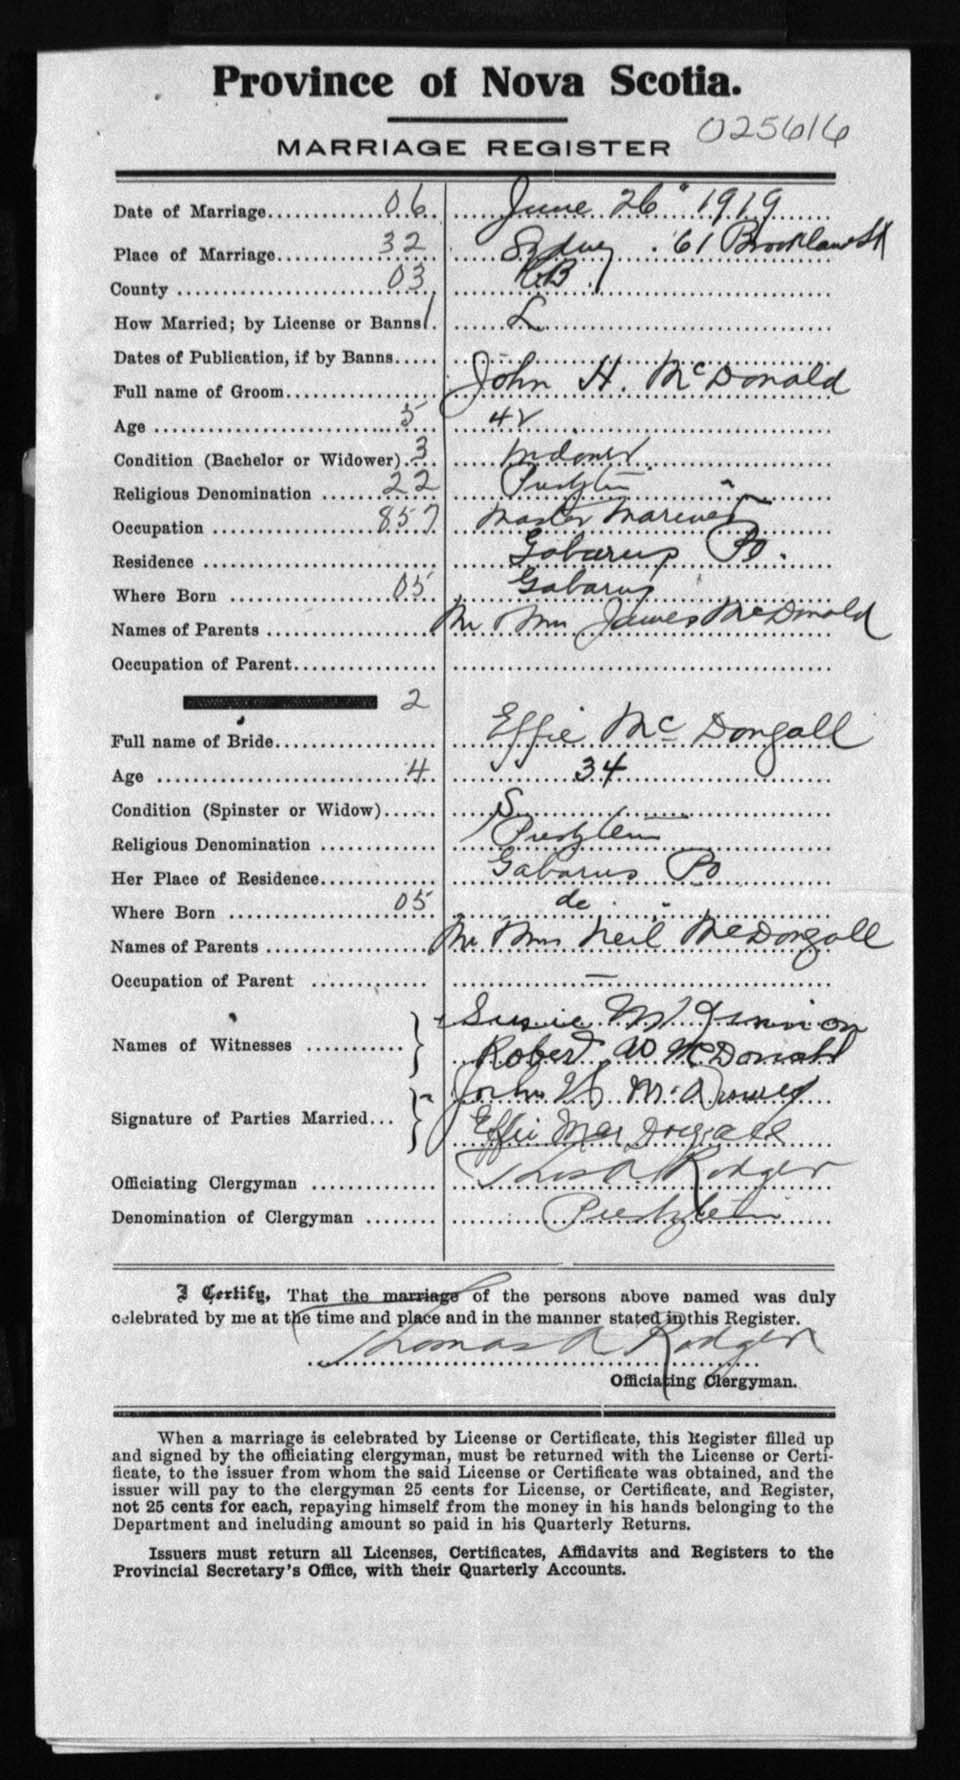 Province of Nova Scotia.
025616
MARRIAGE REGISTER
Date of Marriage 06 June 26 1919
Place of Marriage 32 Sydney 61 Brookland St
County 03 C.B.
How Married; by License or Banns 1 L
Dates of Publication, if by Banns
Full name of Groom John H. McDonald
Age 5 42
Condition (Bachelor or Widower) 3 Widower
Religious Denomination 22
Occupation 857 Master Mariner
Residence Gabarus Po.
Where Born 05 Gabarus
Names of Parents Mr Mrs James McDonald
Occupation of Parent
2
Full name of Bride Effie McDougall
Age 4 34
Condition (Spinster or Widow) S
Religious Denomination
Her Place of Residence Gabarus Po
Where Born 05 do
Names of Parents Mr Mrs Neil McDougall
Occupation of Parent —
Names of Witnesses
Robert W McDonald
Signature of Parties Married
John H McDonald
Effie MacDougall
Officiating Clergyman Thos A Rodger
Denomination of Clergyman
I Certify, That the marriage of the persons above named was duly
celebrated by me at the time and place and in the manner stated in this Register.
Thomas A Rodger
Officiating Clergyman.
When a marriage is celebrated by License or Certificate, this Register filled up
and signed by the officiating clergyman, must be returned with the License or Certi-
ficate, to the issuer from whom the said License or Certificate was obtained, and the
issuer will pay to the clergyman 25 cents for License, or Certificate, and Register,
not 25 cents for each, repaying himself from the money in his hands belonging to the
Department and including amount so paid in his Quarterly Returns.
Issuers must return all Licenses, Certificates, Affidavits and Registers to the
Provincial Secretary's Office, with their Quarterly Accounts.